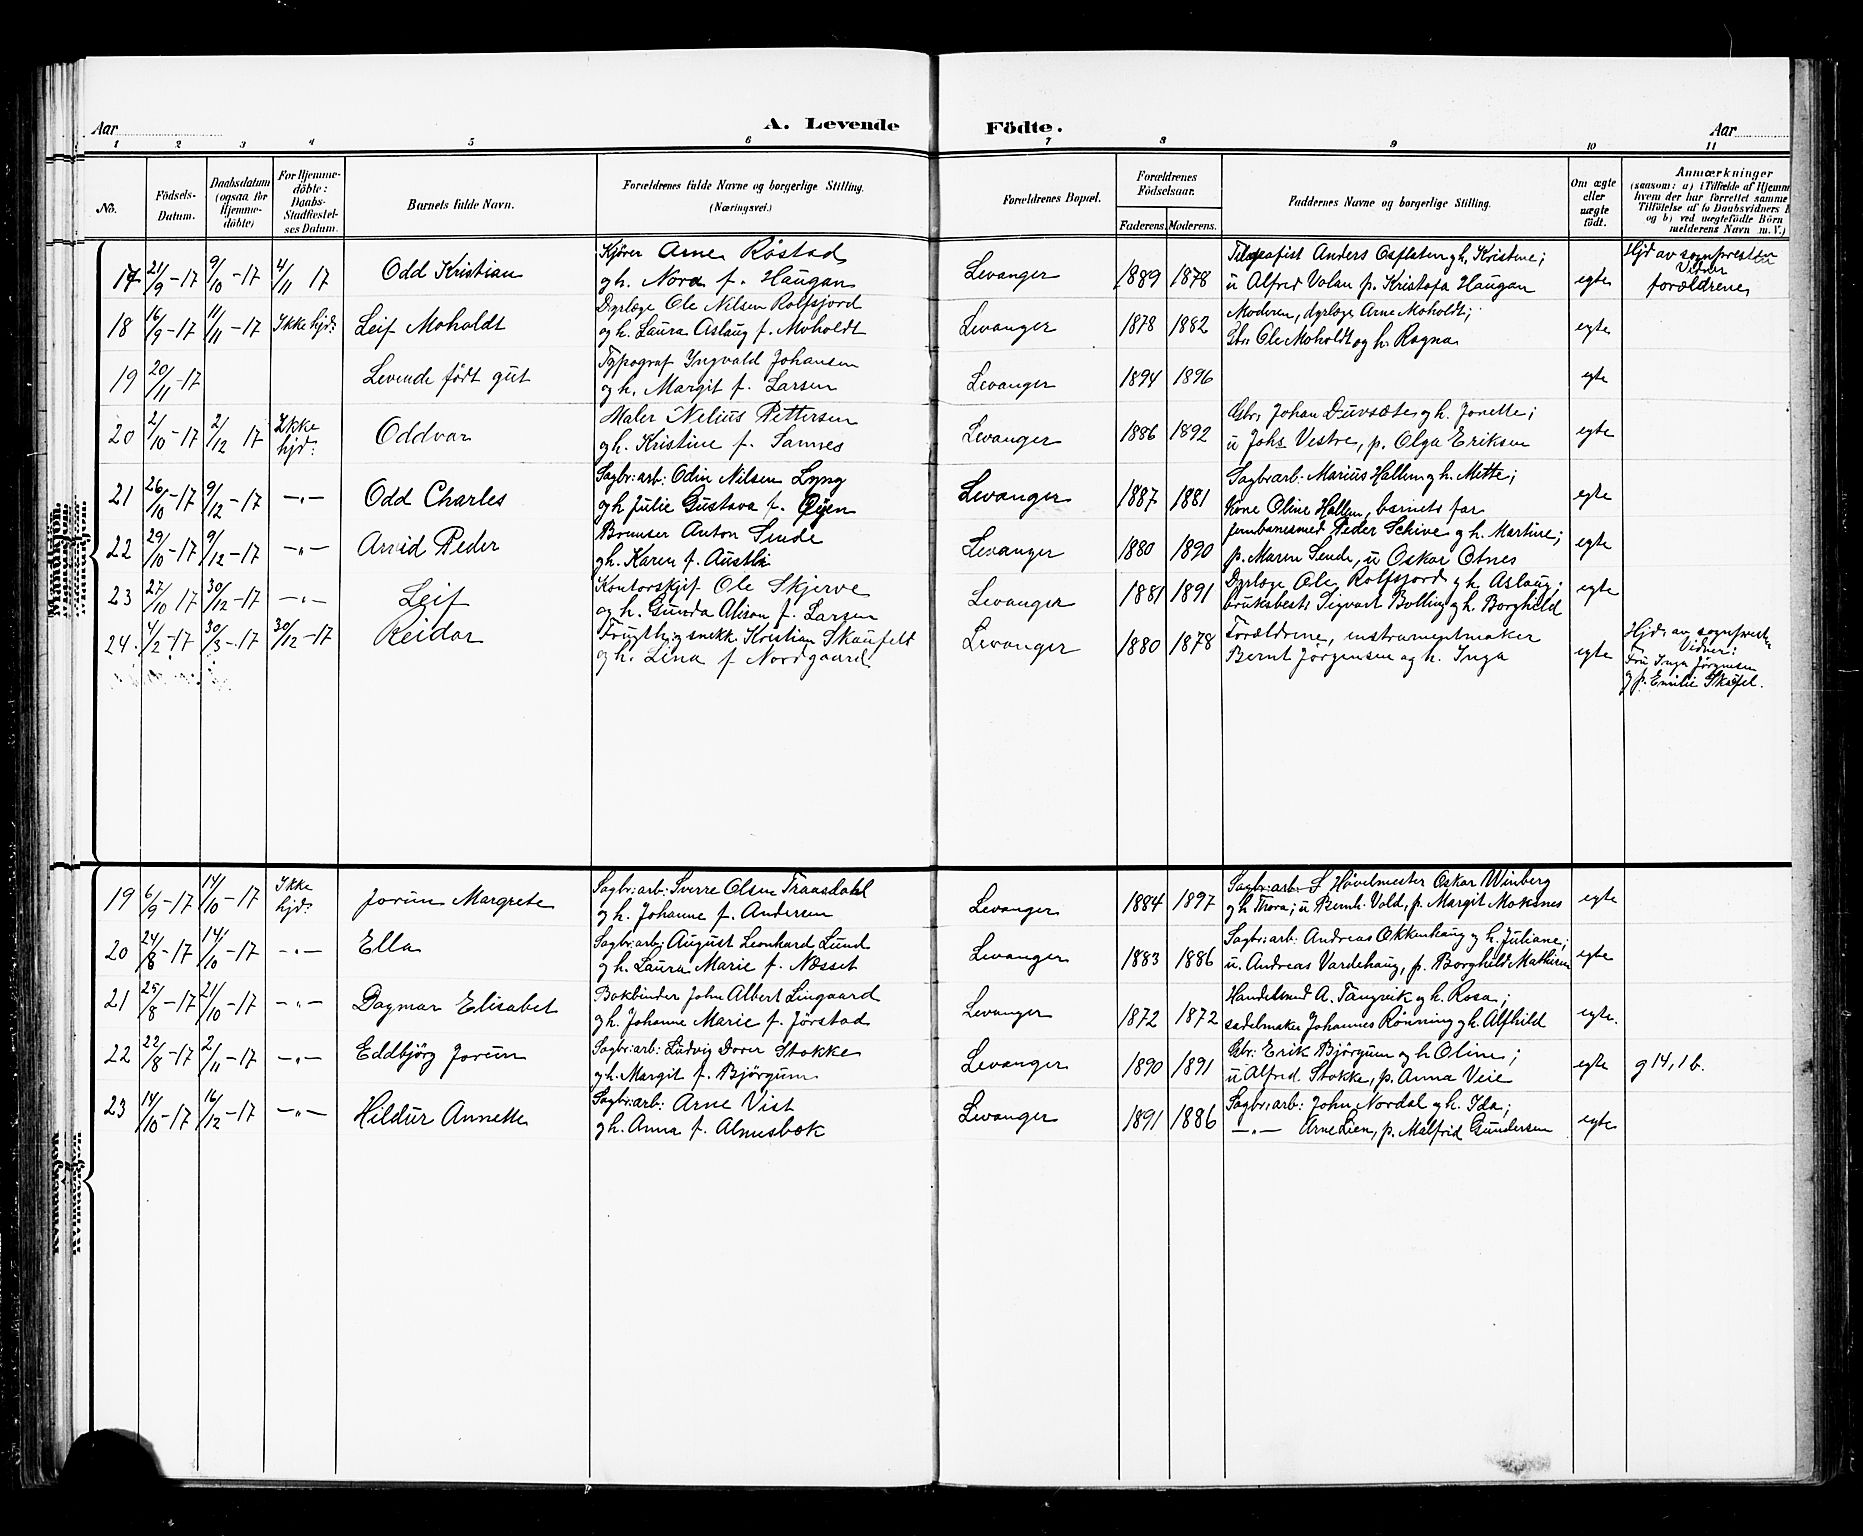 Aar
A. Levende
Födte.
Aar
1 2 3 4 5 6 7 8 9 10 11
No.
Födsels-
Datum.
Daabsdatum
(ogsaa for
Hjemme-
döbte)
For Hjemme-
döbte:
Daabs-
Stadfæstel-
ses Datum.
Barnets fulde Navn.
Forældrenes fulde Navne og borgerlige Stilling.
(Næringsvei.)
Forældrenes Bopæl.
Forældrenes
Födselsaar.
Faderens. Moderens.
Faddernes Navne og borgerlige Stilling.
Om ægte
eller
uægte
födt.
Anmærkninger
(saasom: a) i Tilfælde af Hjemme
hvem der har forrettet samme
Tilföielse af to Daabsvidners
og b) ved uægtefödte Börn
melderens Navn m. V.)
Mandkjön.
17 21/9-17 9/10-17 4/11 17 Odd Kristian
Kjörer Arne Röstad
og h. Nora f. Haugan
Levanger 1889 1878
Anders Osflaten og h. Kristine;
u Alfred Volan p. Kristofa Haugan
egte
Hjd av sognpresten
forældrene
18 16/9-17 11/11-17 Ikke hjd: Leif Moholdt
Dyrlæge Ole Nilsen Rolfsjord
og h. Laura Aslaug f. Moholdt
Levanger 1878 1882
Moderen, dyrlæge Arne Moholdt;
Gbr. Ole Moholdt og h. Ragna
egte
19 20/11-17 Levende födt gut
Typograf Yngvald Johansen
og h. Margit f. Larsen
Levanger 1894 1896 egte
20 2/10-17 2/12 17 Ikke hjd: Oddvar
Maler Nelius Pettersen
og h. Kristine f. Sannes
Levanger 1886 1892
Gbr. Johan Duvsæte og h. Jonette;
u Johs Vestre, p. Olga Eriksen
egte
21 26/10-17 9/12-17 -"- Odd Charles
Sagbr: arb: Odin Nilsen Lyng
og h Julie Gustava f. Öyen
Levanger 1887 1881
Sagbr arb: Marius Hallem og h. Mette;
Kone Oline Hallem, barnets far
egte
22 29/10-17 9/12-17 -"- Arvid Peder
Bremser Anton Sende
og h. Karen f. Austli
Levanger 1880 1890
jernbanesmed Peder Schive og h. Martine;
p. Maren Sende, u Oskar Otnes
egte
23 27/10 17 30/12-17 -"- Leif
Kontorskjef Ole Skjerve
og h. Gunda Alison f. Larsen
Levanger 1881 1891
Dyrlæge Ole Rolfsjord og h. Aslaug;
bruksbest: Sigvart Bolling og h. Borghild
egte
24. 4/2-17 30/3-17 30/12-17 Reidar
snekk. Kristian Skaufelt
og h. Lina f Nordgaard.
Levanger 1880 1878
Forældrene, instrumentmaker
Bernt Jörgensen og h. Inga
egte
Hjd: av sognprest
Vidner:
Fru Inga Jörgensen
og p. Emilie Skaufel.
Kvindekjön
19 6/9-17 14/10-17 Ikke hjd: Jorun Margrete
Sagbr: arb: Sverre Olsen Traasdahl
og h. Johanne f. Andersen
Levanger 1884 1897
Sagbr: arb: Hövelmester Oskar Winberg
og h Thora; u Bernh. Vold, p. Margit Moksnes
egte
20 24/8-17 14/10-17 -"- Ella
Sagbr: arb: August Leonhard Lund
og h. Laura Marie f. Næsset
Levanger 1883 1886
Sagbr: arb: Andreas Okkenhaug og h. Juliane;
u. Andreas Vardehaug, p. Borghild Mathisen
egte
21 25/8-17 21/10-17 -"- Dagmar Elisabet
Bokbinder John Albert Lingaard
og h. Johanne Marie f. Jörstad
Levanger 1872 1872
Handelsmed A. Tangvik og h. Rosa;
sadelmaker Johannes Rönning og h. Alfhild
egte.
22 22/8-17 2/11-17 -"- Eddbjörg Jorun
Sagbr: arb: Ludvig Stokke
og h. Margit f. Björgum
Levanger 1890 1891
Gbr: Erik Björgum og h Oline;
u Alfred Stokke, p. Anna Veie
egte g 14, 1 b.
23 14/10-17 16/12-17 -"- Hildur Annette
Sagbr: arb: Arne Vist
og h. Anna f. Almesbok
Levanger 1891 1886
Sagbr: arb: John Nordal og h. Ida;
-"- Arne Lien, p. Malfrid Gundersen
egte